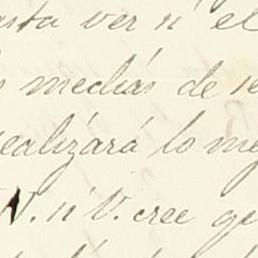 usta ver si el
medias de se
realizará lo me
V. si V. cree que